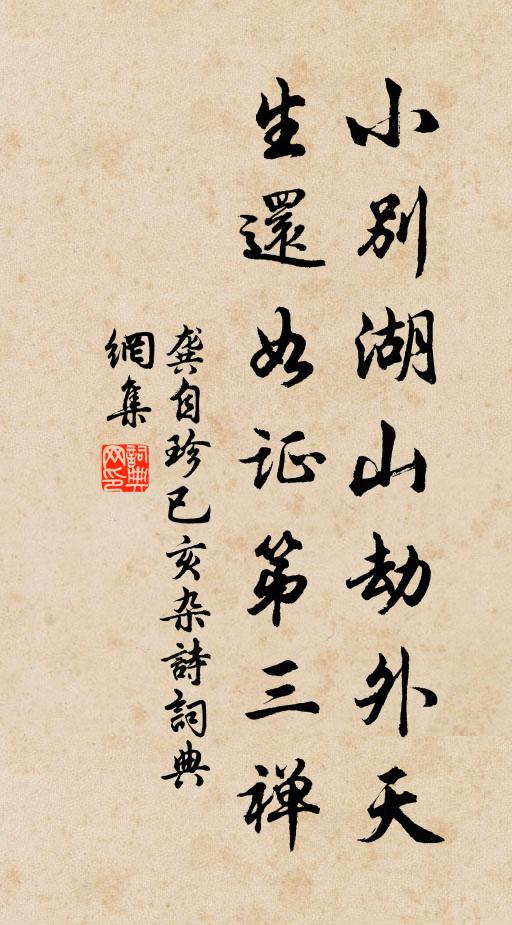 小别湖山劫外天
生還如证第三禅
龔自珍已亥杂詩詞典
網集
詞典
网印